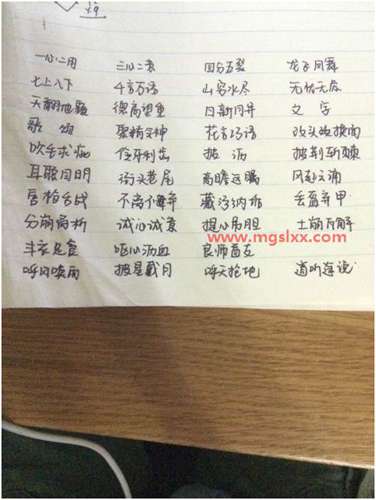 一心二用 三心二意 四分五裂 龙飞凤舞
七上八下 千言万语 山穷水尽 无忧无虑
天翻地覆 德高望重 日新月异 文 字
歌 颂 聚精会神 花言巧语 改头换面
吹毛求疵 伶牙利齿 披 沥 披荆斩棘
耳聪目明 街头巷尾 高瞻远瞩 风起云涌
唇枪舌战 不屑置辩 藏污纳垢 丢盔弃甲
分崩离析 诚心诚意 提心吊胆 土崩瓦解
www.mgslxx.com
丰衣足食 呕心沥血 良师益友
呼风唤雨 披星戴月 呼天抢地 道听途说